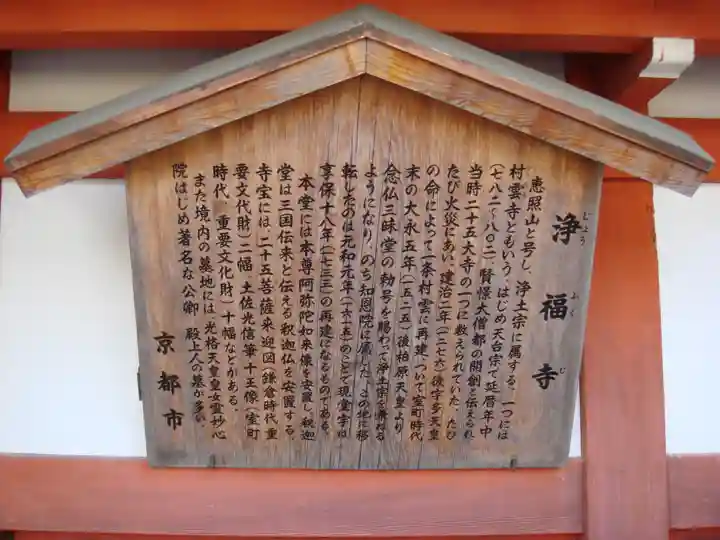 浄福寺
じょう ふく じ
恵照山と号し、浄土宗に属する。一つには
村雲寺ともいう。はじめ天台宗で延暦年中
(七八二〜八〇二)賢憬大僧都の開創と伝えられ
当時二十五大寺の一つに数えられていた。たび
たび火災にあい、建治二年(一二七六)後宇多天皇
の命によって一条村雲に再建、ついで室町時代
末の大永五年(一五二五)後柏原天皇より
念仏三昧堂の勅号を賜わって浄土宗を兼ねる
ようになり、のち知恩院に属した。この地に移
転したのは元和元年(一六一五)のことで現堂宇は
享保十八年(一七三三)の再建になるものである。
本堂には本尊阿弥陀如来像を安置し、釈迦
堂は三国伝来と伝える釈迦仏を安置する。
寺宝には、二十五菩薩来迎図(鎌倉時代 重
要文化財)二幅、土佐光信筆十王像(室町
時代、重要文化財)十幅などがある。
また境内の墓地には、光格天皇皇女霊妙心
院はじめ著名な公卿、殿上人の墓が多い。
京都市